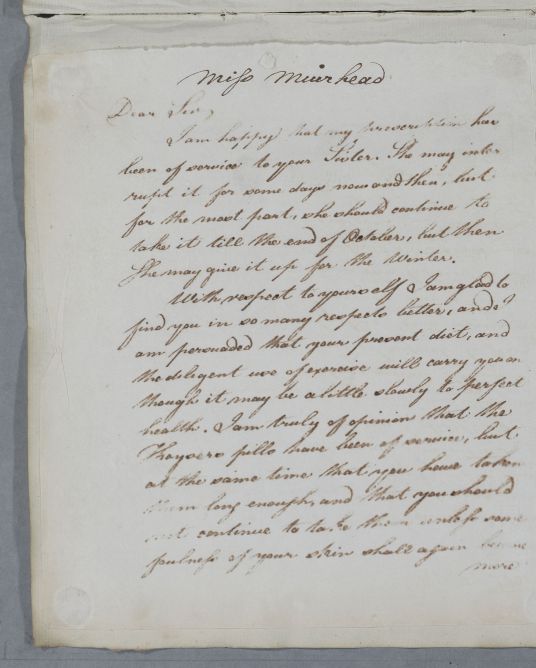 Miss Muirhead
Dear Sir,
I am happy that my prescription has
been of service to your Sister. She may inter
rupt it for some days now and then, but
for the most part, she should continue to
take it till the end of October, but then
She may give it up for the Winter.
With respect to yourself I am glad to
find you in so many respects better, and I
am persuaded that your present diet, and
the diligent use of exercise will carry you on
though it may be a little slowly to perfect
health. I am truly of opinion that the
Keysers pills have been of service, but
at the same time that you have taken
them long enough, and that you should
not continue to take them unless some
of your skin shall again become
more